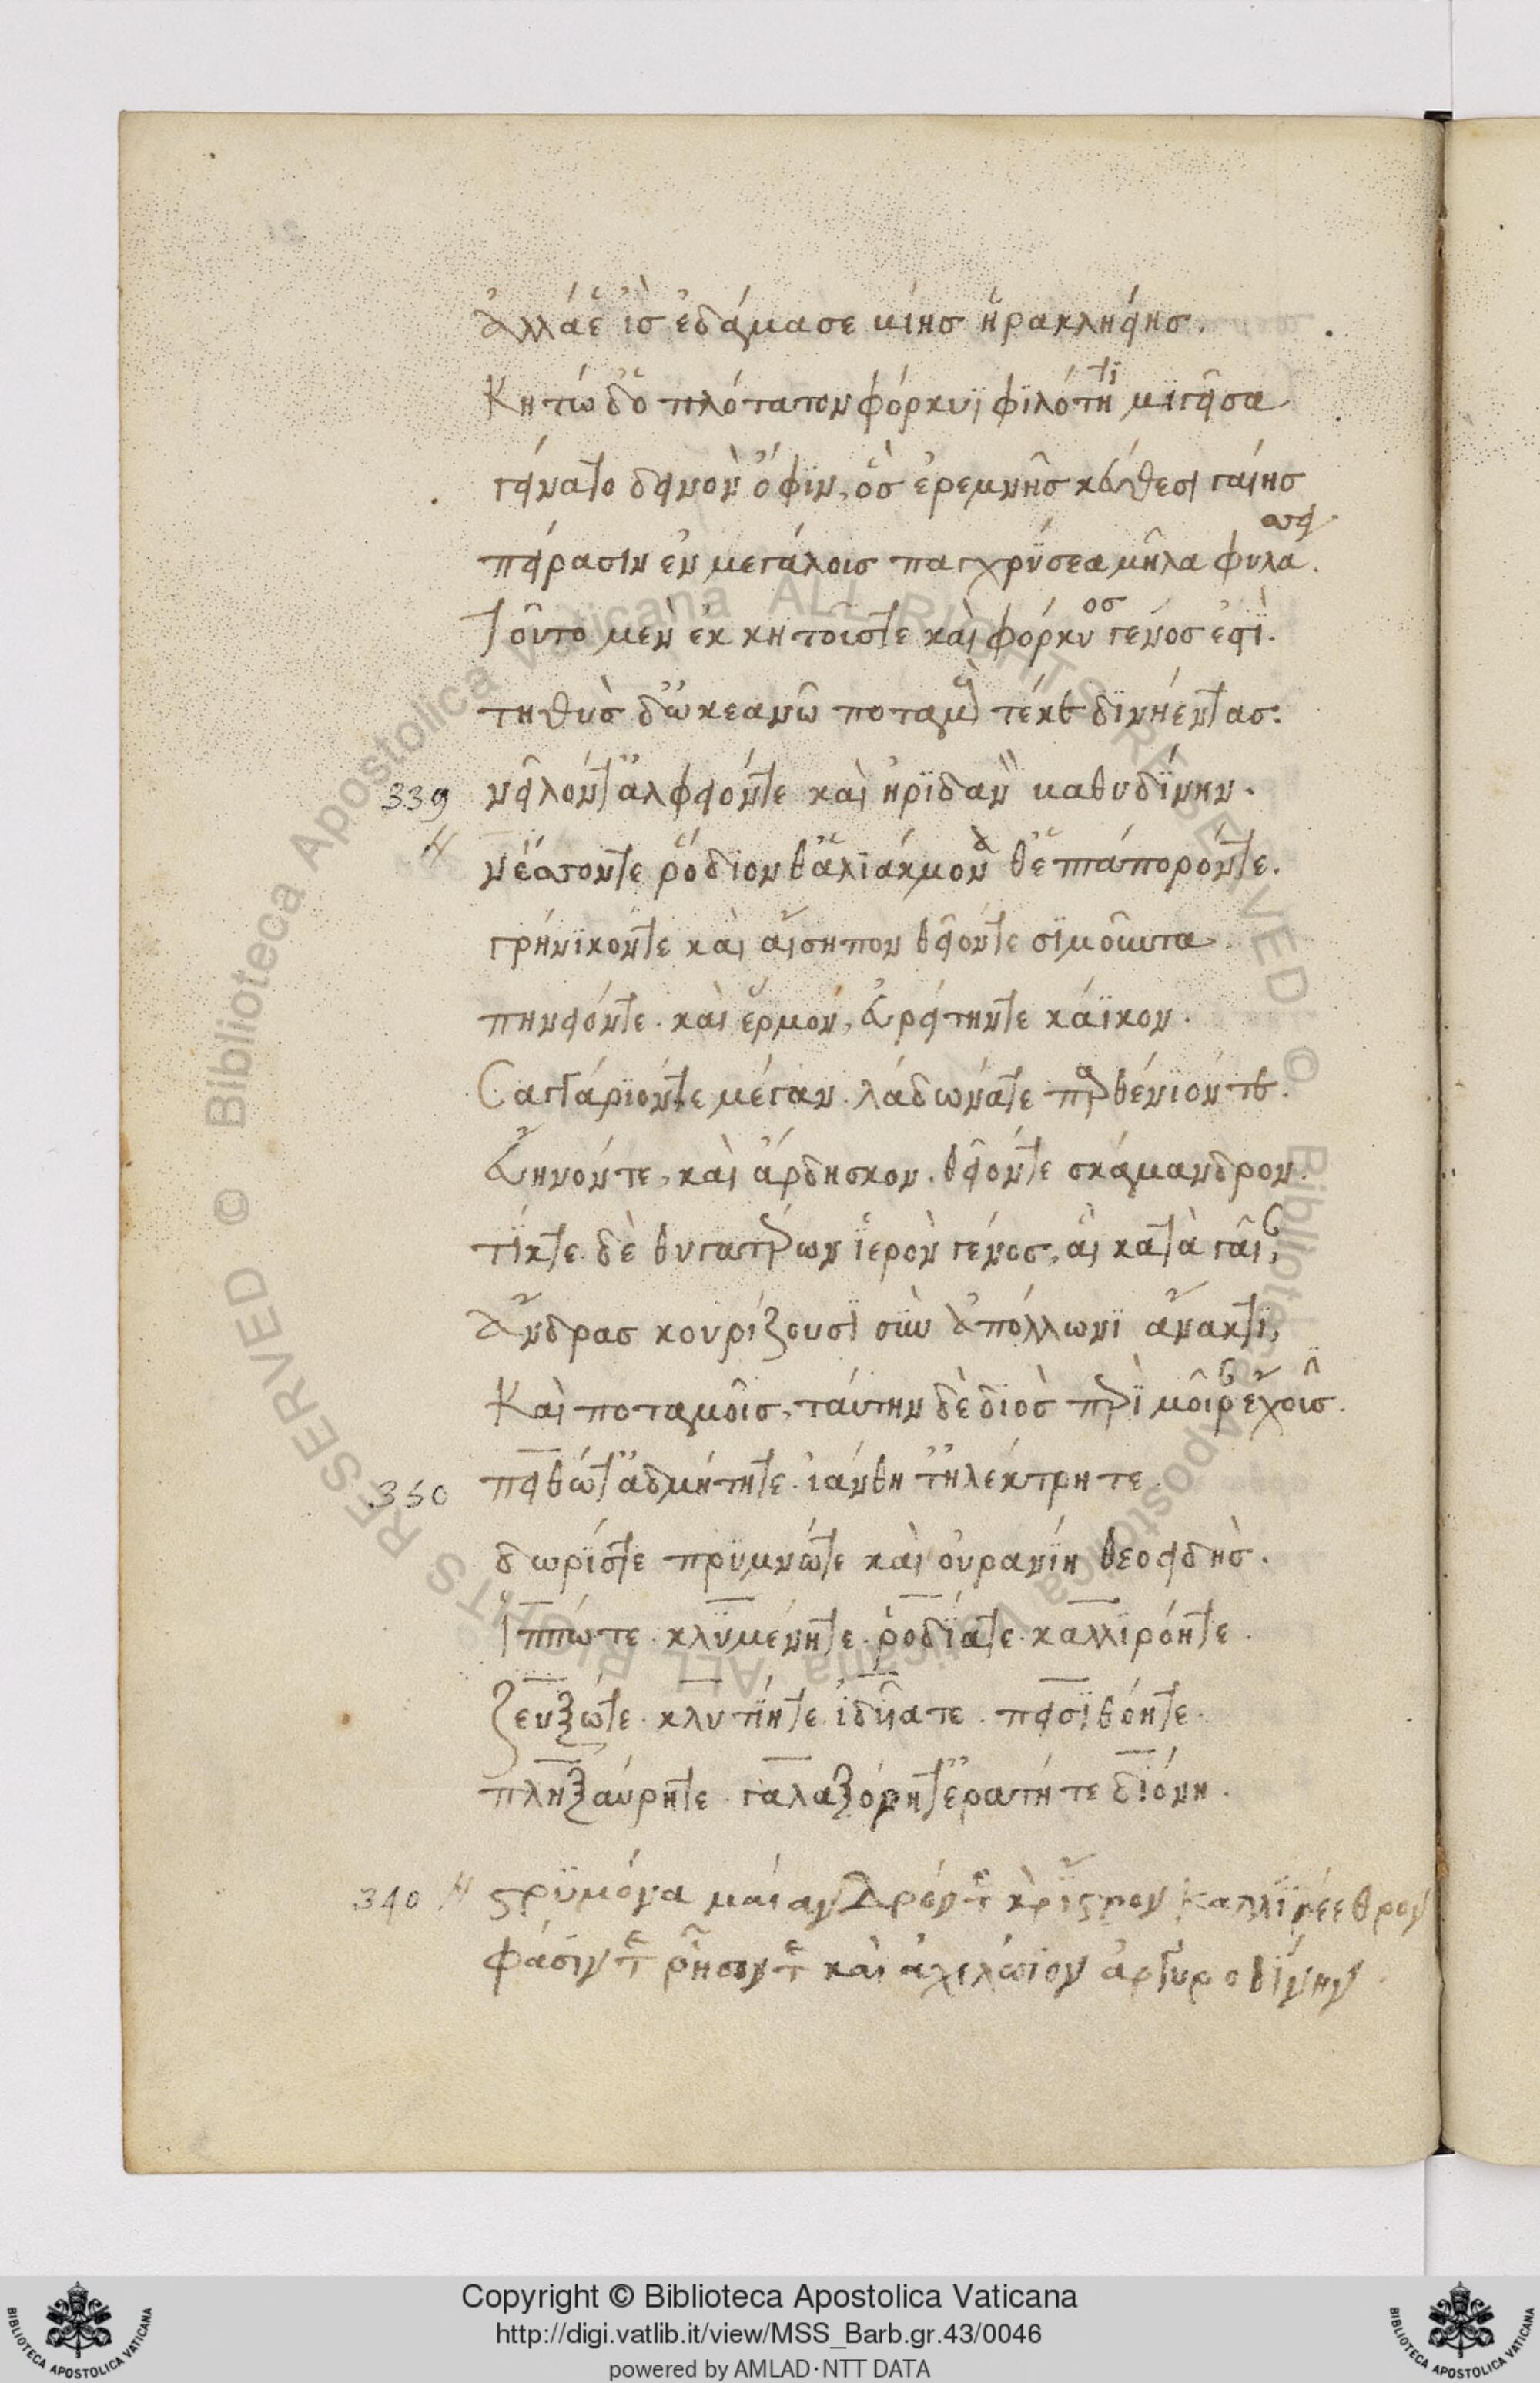 ἀλλά ἑ ἲσ ἐδάμασε βίησ ἡρακληείησ.
Κητὼ δ᾽ ὁπλότατον φόρκυϊ φιλότητι μιγεῖσα
γείνατο δεινὸν ὄφιν, ὃσ ἐρεμνῆσ κεύθεσι γαίησ
πείρασιν ἐν μεγάλοισ παγχρύσεα μῆλα φυλάσσει.
Τοῦτο μὲν ἐκ κητοῖστε καὶ φόρκυοσ γένοσ ἐστὶ.
τηθὺσ δ᾽ ὠκεανῶ ποταμοὺσ τέκε δινήεντασ.
339 νεῖλόντ᾽ ἀλφειόντε καὶ ἠριδανὸν βαθυδίνην.
νέσσοντε ῥοδίον θ᾽ ἁλιάκμονά θ᾽ ἑπτάπορόντε.
γρήνικόντε καὶ αἴσηπον θεῖόντε σιμοῦντα.
πηνειόντε καὶ ἕρμον, εὐρείτηντε κάϊκον.
Σαγγάριόντε μέγαν λάδωνάτε παρθένιόντε.
εὔηνόντε, καὶ ἄρδησκον. θεῖόντε σκάμανδρον.
τίκτε δὲ θυγατέρων ἱερὸν γένοσ, αἳ κατὰ γαῖαν,
ἄνδρασ κουρίζουσι σὺν ἀπόλλωνι ἄνακτι,
Καὶ ποταμοῖσ, ταύτην δὲ διὸσ πάρι μοῖραν ἔχουσι.
350 πειθώτ᾽ ἀδμήτητε ἰάνθη τ᾽ ἠλέκτρη τε
δωρίστε πρυμνώτε καὶ οὐρανίη θεοειδὴσ.
Ἱππώτε κλυμένητε ῥοδιάτε καλλιρόητε.
ζευξώτε κλυτίητε ἰδυῖατε πεισιθόητε.
πληξαύρητε γαλαξόρητ᾽ ἐρατή τε διόνη.
340 στρυμόνα μαίανδρόν τε κὶ ἴστρον καλλιρέεθρον
φάσιν τε ῥῆσον τε καὶ ἀχελώϊον ἀργυροδίνην
Copyright © Biblioteca Apostolica Vaticana
http://digi.vatlib.it/view/MSS_Barb.gr.43/0046
powered by AMLAD·NTT DATA